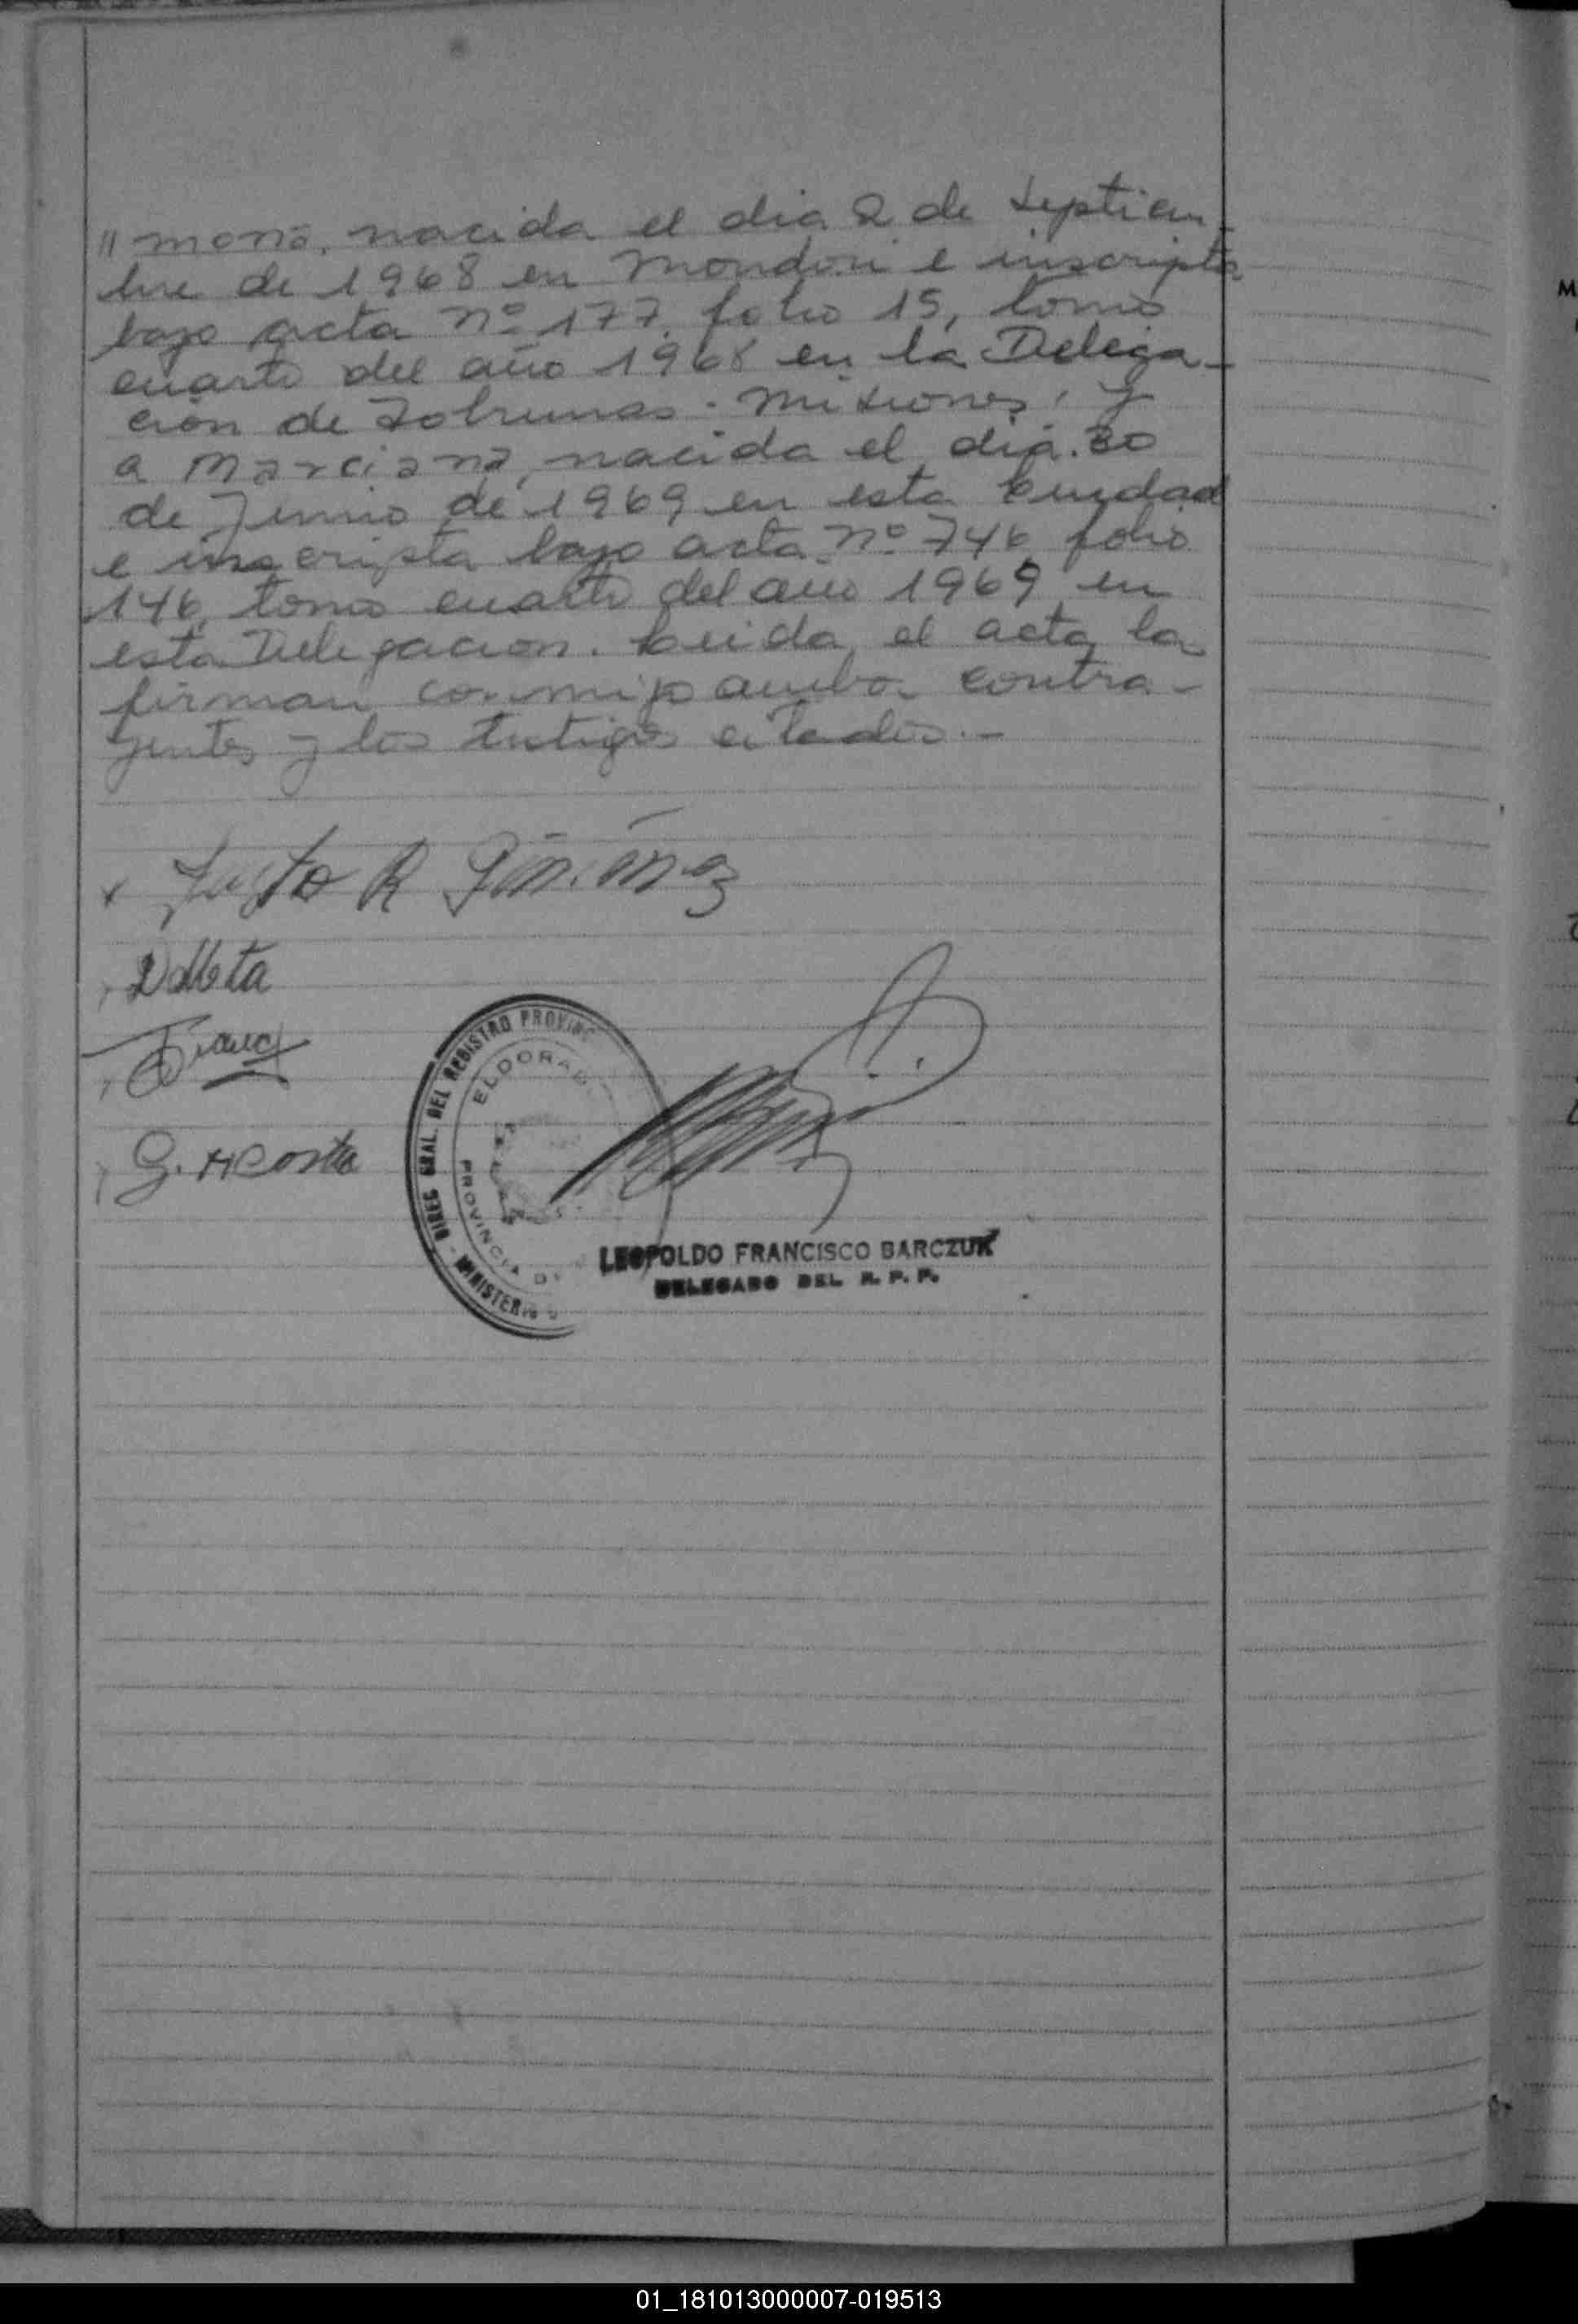 " mona, nacida el dia 2 de Septiem
bre de 1968 en Mondori e inscripta
bajo acta nº 177, folio 15, tomo
cuarto del año 1968 en la Delega-
ción de - Misiones, y
a Marciana, nacida el dia 30
de Junio de 1969 en esta Ciudad
e inscripta bajo acta nº 746 folio
146, tomo cuarto del año 1969 en
esta Delegacion. Leida el acta la
firman conmigo ambos contra-
yentes y los testigos citados.-
x Justo R Giménez
G. Acosta
DIREC GRAL. DEL REGISTRO PROVINC
ELDORAD
PROVINCIA DE
MINISTERIO
LEOPOLDO FRANCISCO BARCZUK
DELEGADO DEL R. P. P.
01_181013000007-019513